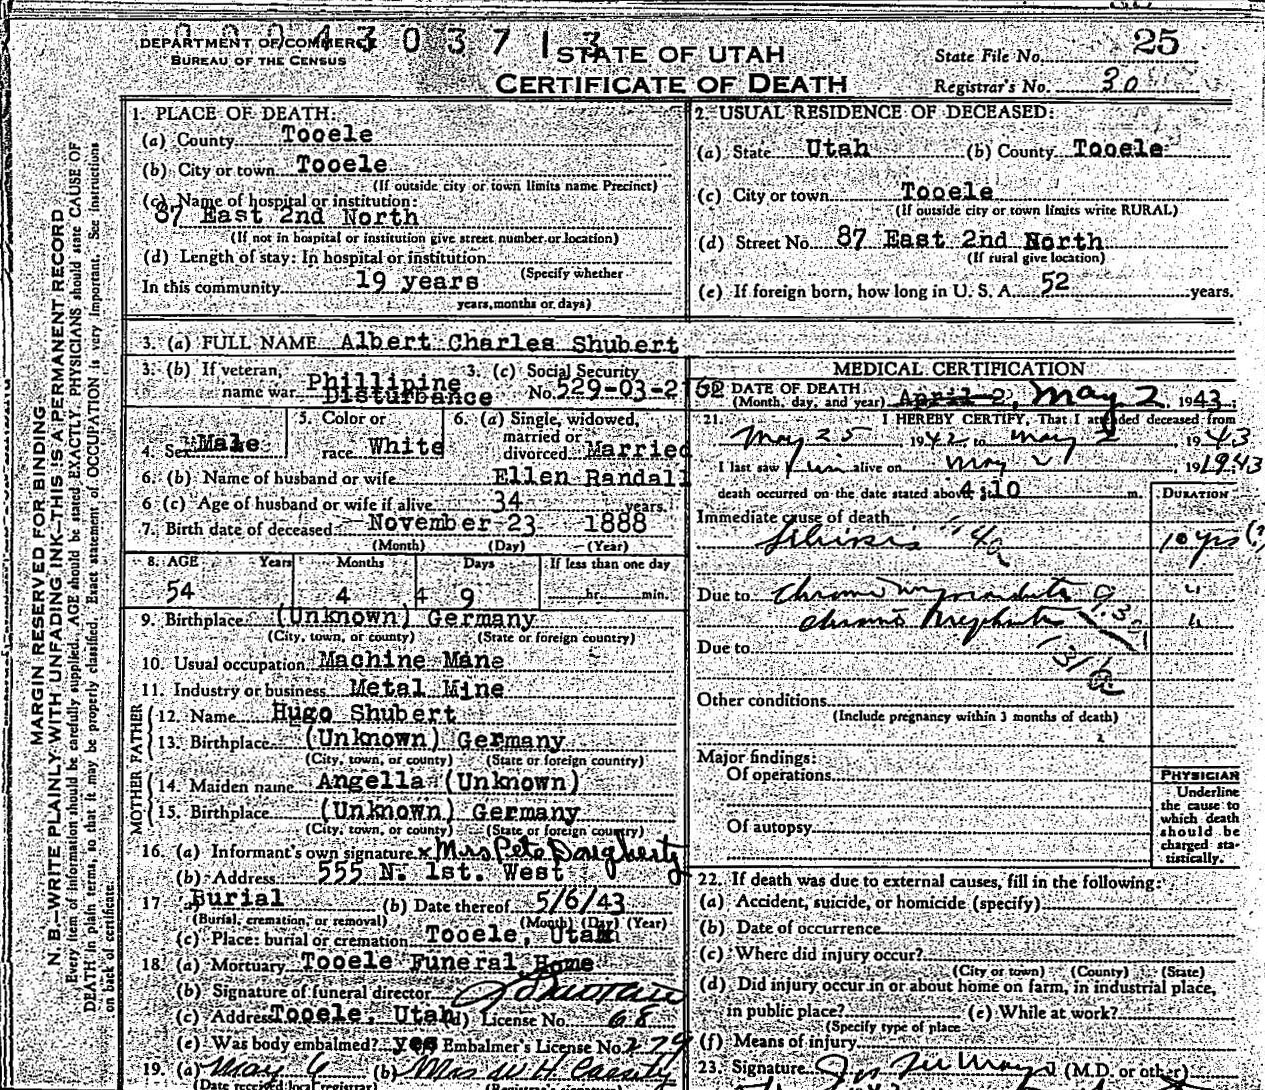 00043037 1 3
DEPARTMENT OF COMMERCE
BUREAU OF THE CENSUS
STATE OF UTAH
CERTIFICATE OF DEATH
State File No. 25
Registrar's No. 30
MARGIN RESERVED FOR BINDING
N.B.—WRITE PLAINLY WITH UNFADING INK—THIS IS A PERMANENT RECORD
Every item of information should be carefully supplied. AGE should be stated EXACTLY. PHYSICIANS should state CAUSE OF
DEATH in plain terms, so that it may be properly classified. Exact statement of OCCUPATION is very important. See instructions
on back of certificate.
1. PLACE OF DEATH:
(a) County Tooele
(b) City or town Tooele
(If outside city or town limits name Precinct)
(c) Name of hospital or institution:
87 East 2nd North
(If not in hospital or institution give street number or location)
(d) Length of stay: In hospital or institution
(Specify whether
In this community 19 years
years, months or days)
2. USUAL RESIDENCE OF DECEASED:
(a) State Utah (b) County Tooele
(c) City or town Tooele
(If outside city or town limits write RURAL)
(d) Street No. 87 East 2nd North
(If rural give location)
(e) If foreign born, how long in U. S. A. 52 years.
3. (a) FULL NAME Albert Charles Shubert
3. (b) If veteran, name war Phillipine Disturbance
3. (c) Social Security No. 529-03-2162
4. Sex Male
5. Color or race White
6. (a) Single, widowed, married or divorced Married
6. (b) Name of husband or wife Ellen Randall
6 (c) Age of husband or wife if alive 34 years.
7. Birth date of deceased November 23 1888
(Month) (Day) (Year)
8. AGE Years Months Days If less than one day
54 4 9 hr. min.
9. Birthplace (Unknown) Germany
(City, town, or county) (State or foreign country)
10. Usual occupation Machine Mane
11. Industry or business Metal Mine
FATHER
12. Name Hugo Shubert
13. Birthplace (Unknown) Germany
(City, town, or county) (State or foreign country)
MOTHER
14. Maiden name Angella (Unknown)
15. Birthplace (Unknown) Germany
(City, town, or county) (State or foreign country)
16. (a) Informant's own signature x Mrs Pete Daugherty
(b) Address 555 N. 1st. West
17 Burial (b) Date thereof 5/6/43
(Burial, cremation, or removal) (Month) (Day) (Year)
(c) Place: burial or cremation Tooele, Utah
18. (a) Mortuary Tooele Funeral Home
(b) Signature of funeral director
(c) Address Tooele, Utah (d) License No. 68
(e) Was body embalmed? yes Embalmer's License No. 279
19. (a) May 6 (b) Mrs W H Cassity
(Date received local registrar)
MEDICAL CERTIFICATION
20 DATE OF DEATH
(Month, day, and year) April 2, May 2, 1943;
21. I HEREBY CERTIFY, That I attended deceased from
May 25, 1942 to May 2, 1943
I last saw him alive on May 2, 191943
death occurred on the date stated above 4:10 m.
DURATION
Immediate cause of death
Silicosis 10 yrs (?)
Due to chronic myocarditis 93 "
chronic Nephritis "
131
Due to
Other conditions
(Include pregnancy within 3 months of death)
Major findings:
Of operations
Of autopsy
PHYSICIAN
Underline
the cause to
which death
should be
charged sta-
tistically.
22. If death was due to external causes, fill in the following:
(a) Accident, suicide, or homicide (specify)
(b) Date of occurrence
(c) Where did injury occur?
(City or town) (County) (State)
(d) Did injury occur in or about home on farm, in industrial place,
in public place? (e) While at work?
(Specify type of place
(f) Means of injury
23. Signature (M.D. or other)